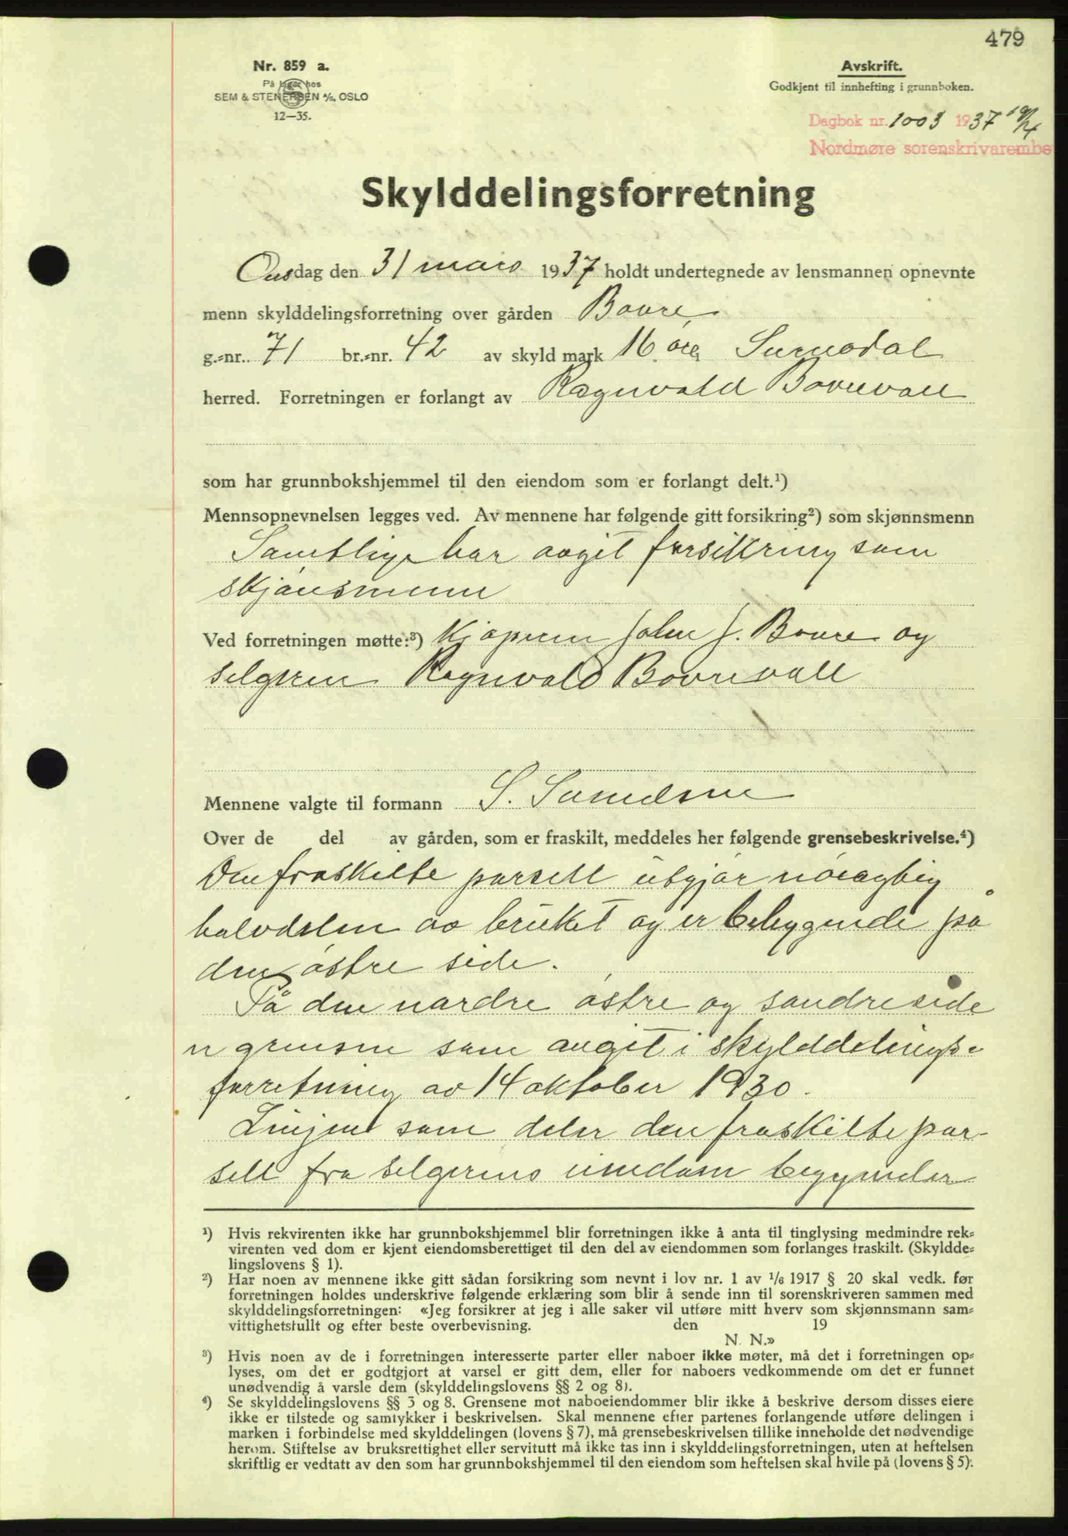 479
Nr. 859 a.
På lager hos
SEM & STENERSEN A/S, OSLO
12—35.
Avskrift.
Godkjent til innhefting i grunnboken.
Dagbok nr. 1003 1937 19/4
Nordmøre sorenskrivarembe
Skylddelingsforretning
Onsdag den 31 mars 1937 holdt undertegnede av lensmannen opnevnte
menn skylddelingsforretning over gården Bovre
g.-nr. 71 br.-nr. 42 av skyld mark 16 øre Surnadal
herred. Forretningen er forlangt av Ragnvald Bovrevall
som har grunnbokshjemmel til den eiendom som er forlangt delt.¹)
Mennsopnevnelsen legges ved. Av mennene har følgende gitt forsikring²) som skjønnsmenn
Samtlige har avgit forsikring som
skjønsmenn
Ved forretningen møtte:³) Kjøperen John J. Bovre og
selgeren Ragnvald Bovrevall
Mennene valgte til formann S.
Over de del av gården, som er fraskilt, meddeles her følgende grensebeskrivelse.⁴)
Den fraskilte parsell utgjør nøiagtig
halvdelen av bruket og er beliggende på
den østre side.
På den nordre østre og søndre side
er grensene som avgit i skylddelings-
forretning av 14 oktober 1930.
Linjen som deler den fraskilte par-
sell fra selgerens eiendom begynder
¹) Hvis rekvirenten ikke har grunnbokshjemmel blir forretningen ikke å anta til tinglysing medmindre rek-
virenten ved dom er kjent eiendomsberettiget til den del av eiendommen som forlanges fraskilt. (Skyldde-
lingslovens § 1).
²) Har noen av mennene ikke gitt sådan forsikring som nevnt i lov nr. 1 av 1/6 1917 § 20 skal vedk. før
forretningen holdes underskrive følgende erklæring som blir å sende inn til sorenskriveren sammen med
skylddelingsforretningen: «Jeg forsikrer at jeg i alle saker vil utføre mitt hverv som skjønnsmann sam-
vittighetsfullt og efter beste overbevisning. den 19
N. N.»
³) Hvis noen av de i forretningen interesserte parter eller naboer ikke møter, må det i forretningen op-
lyses, om det er godtgjort at varsel er gitt dem, eller for naboers vedkommende om det er funnet
unødvendig å varsle dem (skylddelingslovens §§ 2 og 8).
⁴) Se skylddelingslovens §§ 3 og 8. Grensene mot naboeiendommer blir ikke å beskrive dersom disses eiere
ikke er tilstede og samtykker i beskrivelsen. Skal mennene efter partenes forlangende utføre delingen i
marken i forbindelse med skylddelingen (lovens § 7), må grensebeskrivelsen tillike inneholde det nødvendige
herom. Stiftelse av bruksrettighet eller servitutt må ikke tas inn i skylddelingsforretningen, uten at heftelsen
skriftlig er vedtatt av den som har grunnbokshjemmel til den eiendom som heftelsen skal hvile på (lovens § 5).